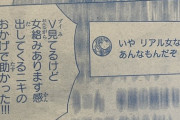 V見てるけど
女絡みあります感
出してくるニキの
おかげで助かった!!!
いや リアル女な
あんなもんだぞ